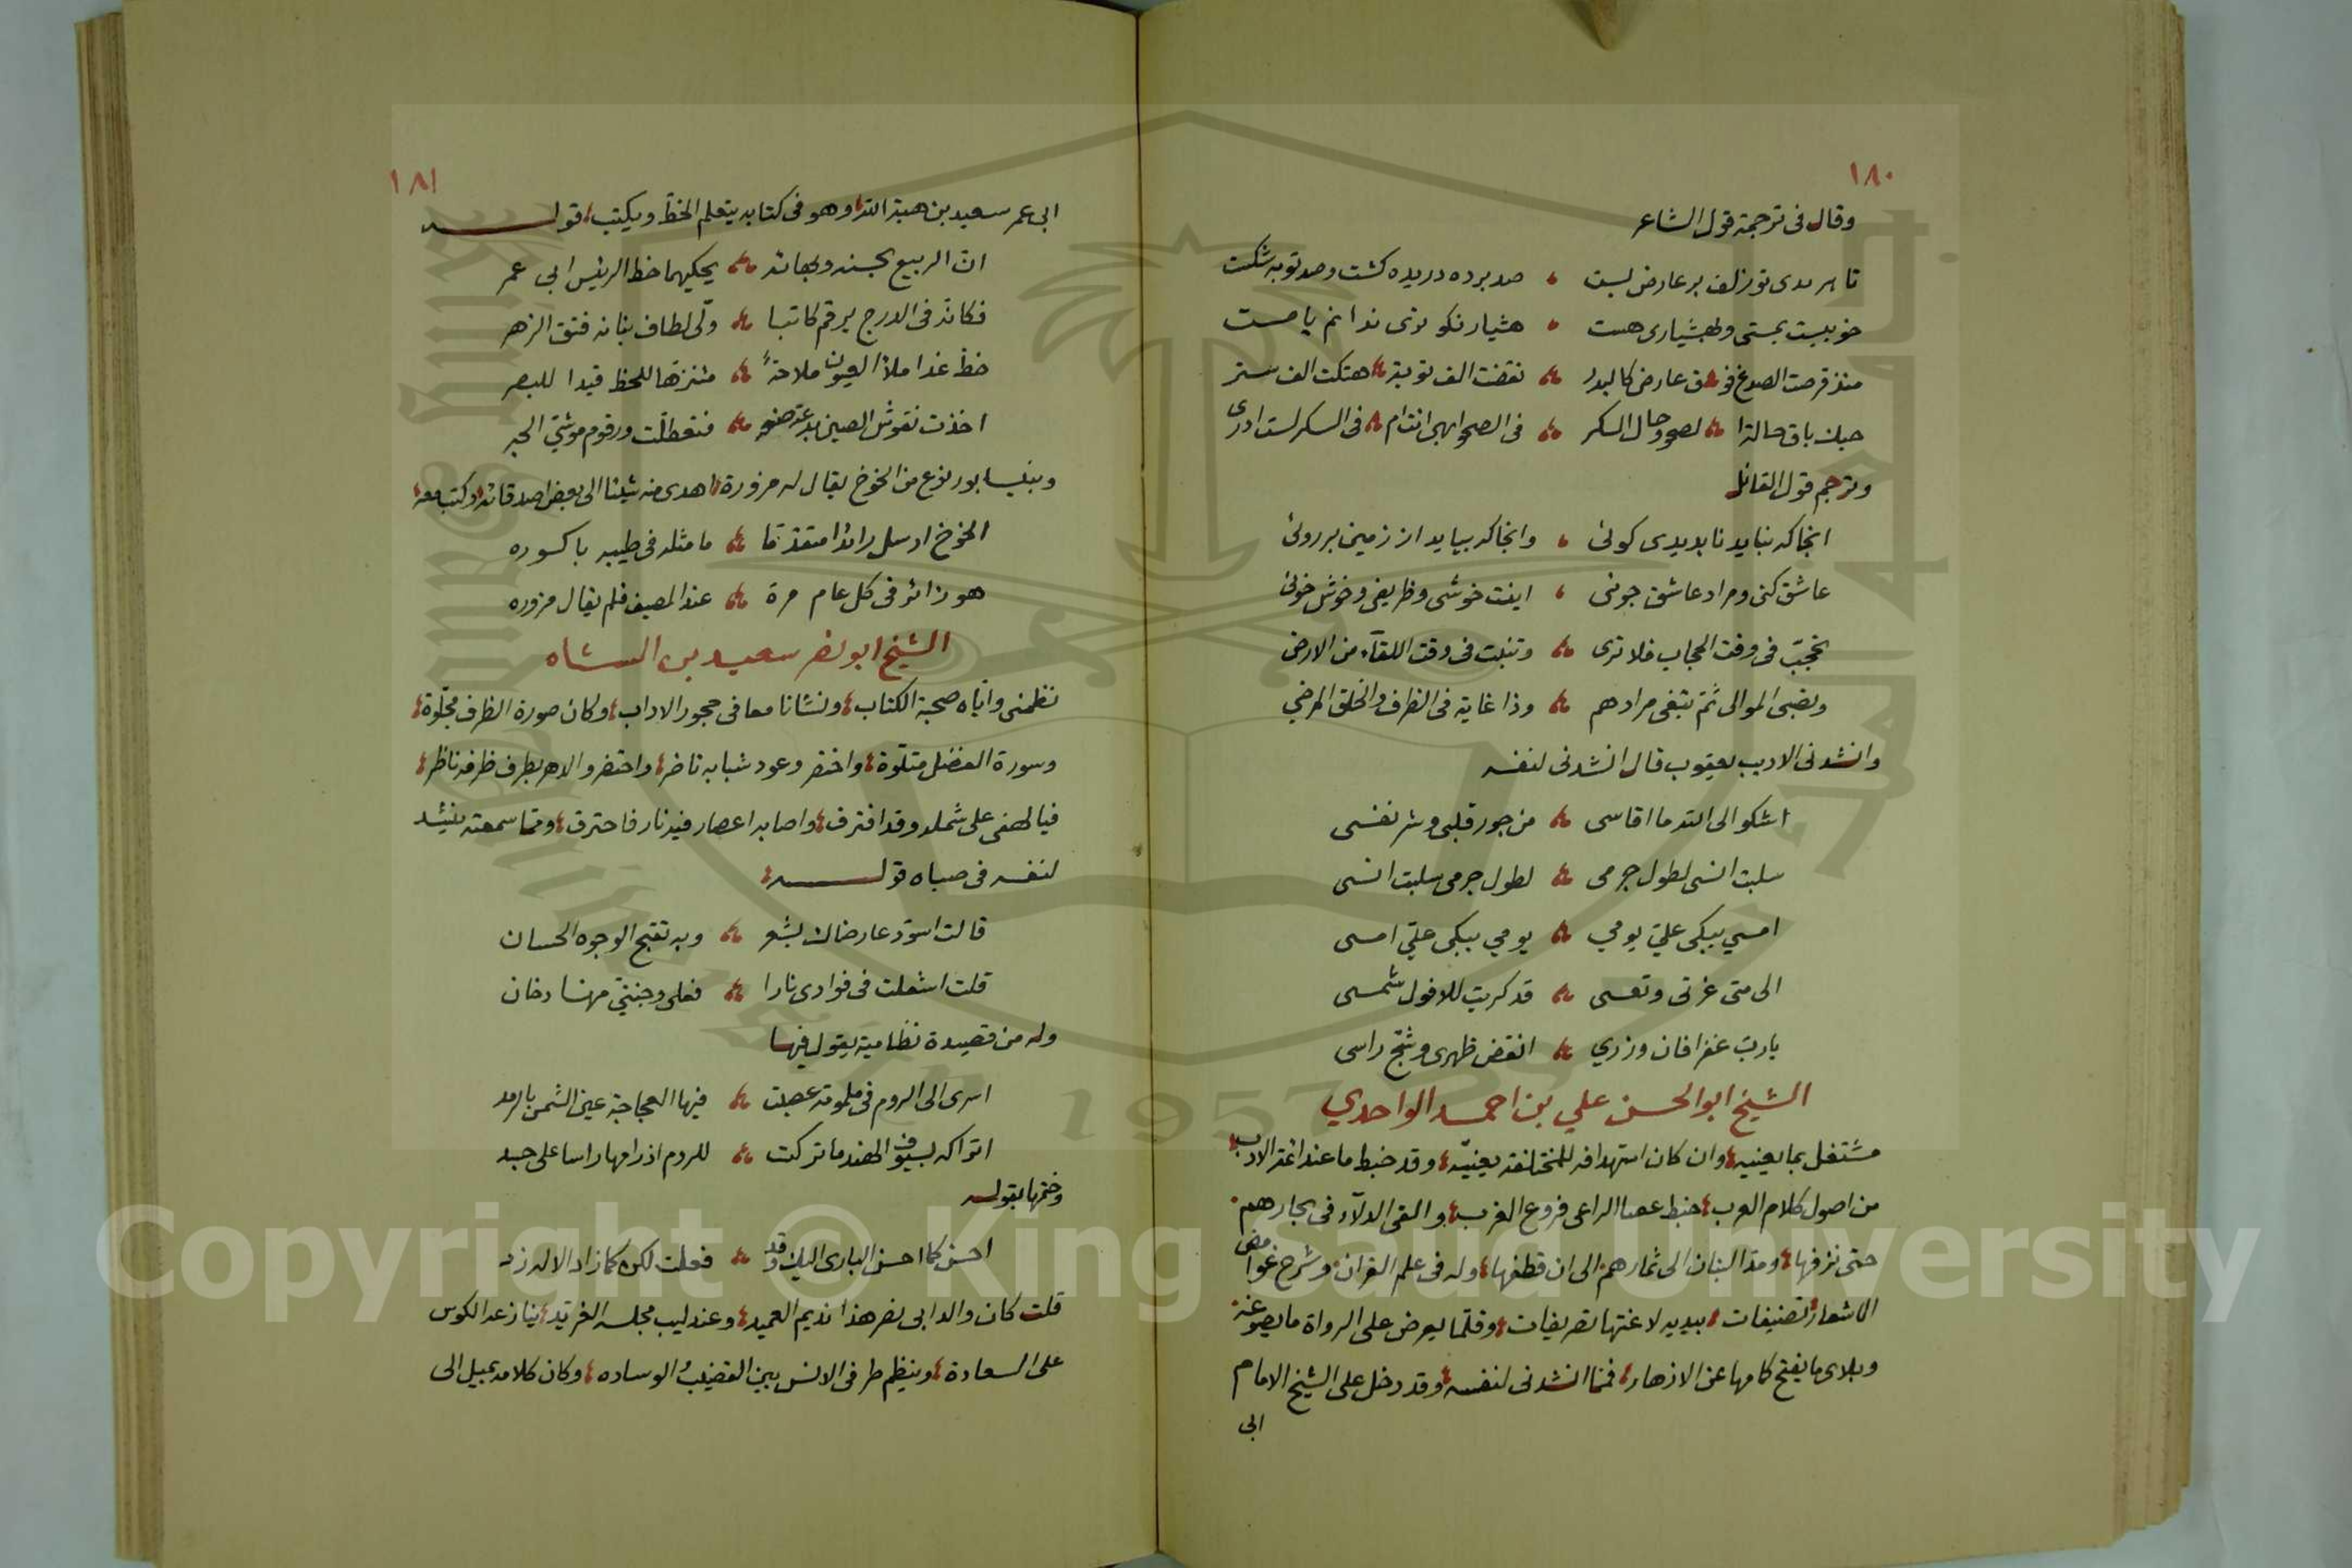 ١٨٠
وقال فى ترجمة قول الشاعر
تا بر زلف بر عارض بست ، صد برده دريده كشت وصد توبه شكست
بمستى وبهشيارى هست ، هشيار نكو ندانم يا مست
منذ قرصت الصدغ فوق عارض كالبدر نقضت الف توبة هتكت الف ستر
باق حالة الصحو وحال السكر فى الصحو ابهى انت ام فى السكر لست ادرى
وترجم قول القائل
انجا كه نبايد نا بديدى كوئى ، وانجا كه بيايد از زمين بر روئى
عاشق كنى ومراد عاشق جوئى ، اينت خوشى وظريفى وخوش خوئى
تحجب فى وقت الحجاب فلا ترى وتنبت فى وقت اللقآء من الارض
وتصبى الموالى ثم تبغى مرادهم وذا غاية فى الظرف والخلق المرضي
وانشدنى الاديب يعقوب قال انشدنى لنفسه
اشكو الى الله ما اقاسى من جور قلبى وشر نفسى
سلبت انسى لطول جرمى لطول جرمى سلبت انسى
امسي يبكى علي يومي يومي يبكى علي امسى
الى متى غرتى وتعسى قد كربت للافول شمسى
يارب غفرا فان وزري انقض ظهرى وشج راسى
الشيخ ابو الحسن علي بن احمد الواحدي
مشتغل بما يعنيه وان كان استهدافه للمختلفة يعنيه وقد خبط ما عند ائمة الادب
من اصول كلام العرب خبط عصا الراعى فروع الغرب والقى الدلآء فى بحارهم
حتى نزفها ومد البنان الى ثمارهم الى ان قطفها وله فى علم القران وشرح غوامض
الاشعار تصنيفات بيديه لاعنتها تصريفات وقلما يعرض على الرواة ما يصوغه
عن الازهار فمما انشدنى لنفسه وقد دخل على الشيخ الامام
ابى
١٨١
ابى عمر سعيد بن هبة الله وهو فى كتابه يتعلم الخط ويكتب قوله
ان الربيع بحسنه وبهائه يحكيهما خط الرئيس ابى عمر
فكانه فى الدرج يرقم كاتبا ولى لطاف بنانه فتق الزهر
خط غدا ملأ العيون ملاحة متنزها للحظ قيدا للبصر
اخذت نقوش الصين بدعة صنعه فتعطلت ورقوم موشي الحبر
وبنيسابور نوع من الخوخ يقال له مزورة اهدى منه شيئا الى بعض اصدقائه وكتب معه
الخوخ ارسل رائدا متقدما ما مثله فى طيبه باكوره
هو زائر فى كل عام مرة عند المصيف فلم يقال مزوره
الشيخ ابو نصر سعيد بن الشاه
نظمنى واياه صحبة الكتاب ونشانا معا فى حجور الاداب وكان صورة الظرف مجلوة
وسورة الفضل متلوة واختضر وعود شبابه ناضر واحتضر والدهر بطرف ظرفه ناظر
فيا لهفى على شمله وقد افترق واصابه اعصار فيه نار فاحترق ومما سمعته ينشد
لنفسه فى صباه قوله
قالت اسود عارضاك بشعر وبه تقبح الوجوه الحسان
قلت اشعلت فى فوادى نارا فعلى وجنتي منها دخان
وله من قصيدة نظامية يقول فيها
اسرى الى الروم فى ملمومة عصبت فيها العجاجة عين الشمس بالرمد
اتراكه بسيوف الهند ما تركت للروم اذ رامها راسا على جسد
وختمها بقوله
احسن كما احسن البارى اليك وقد فعلت لكن كما زاد الاله زد
قلت كان والد ابى نصر هذا نديم العميد وعندليب مجلسه الغريد ينازعه الكوس
على السعادة وينظم طرفى الانس بين القضيب والوساده وكان كلامه يميل الى